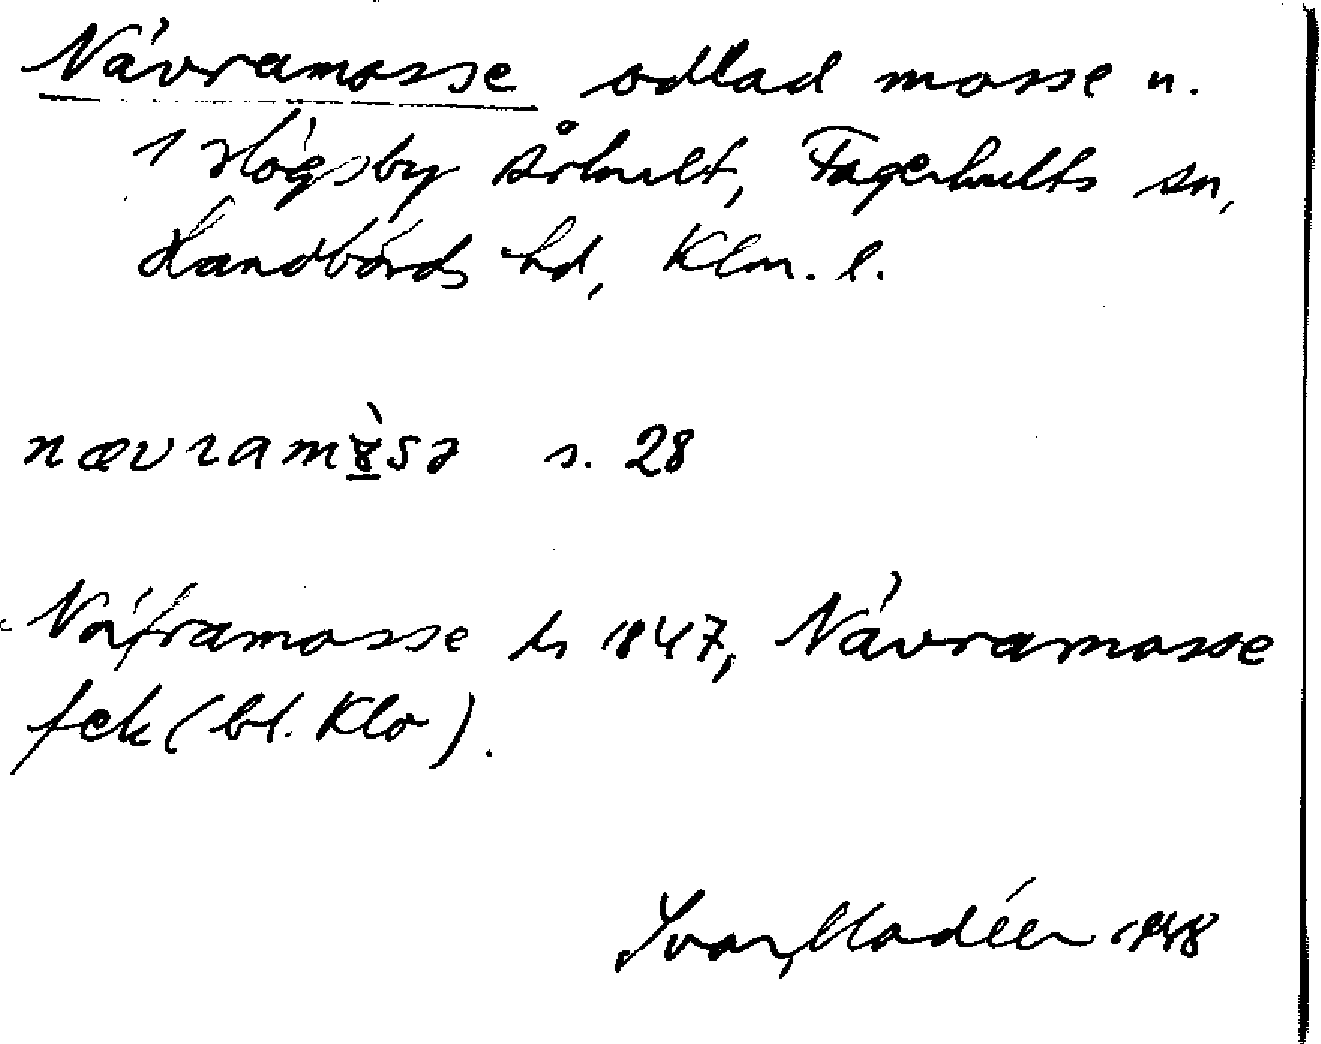 Nävramosse odlad mosse u.
1 Högsby Århult, Fagerhults sn,
Handbörds hd, Klm. l.
nævramɤ̀sə s. 28
Näframosse ls 1847, Nävramosse
fek (bl. Klo).
Ivar Modéer 1948